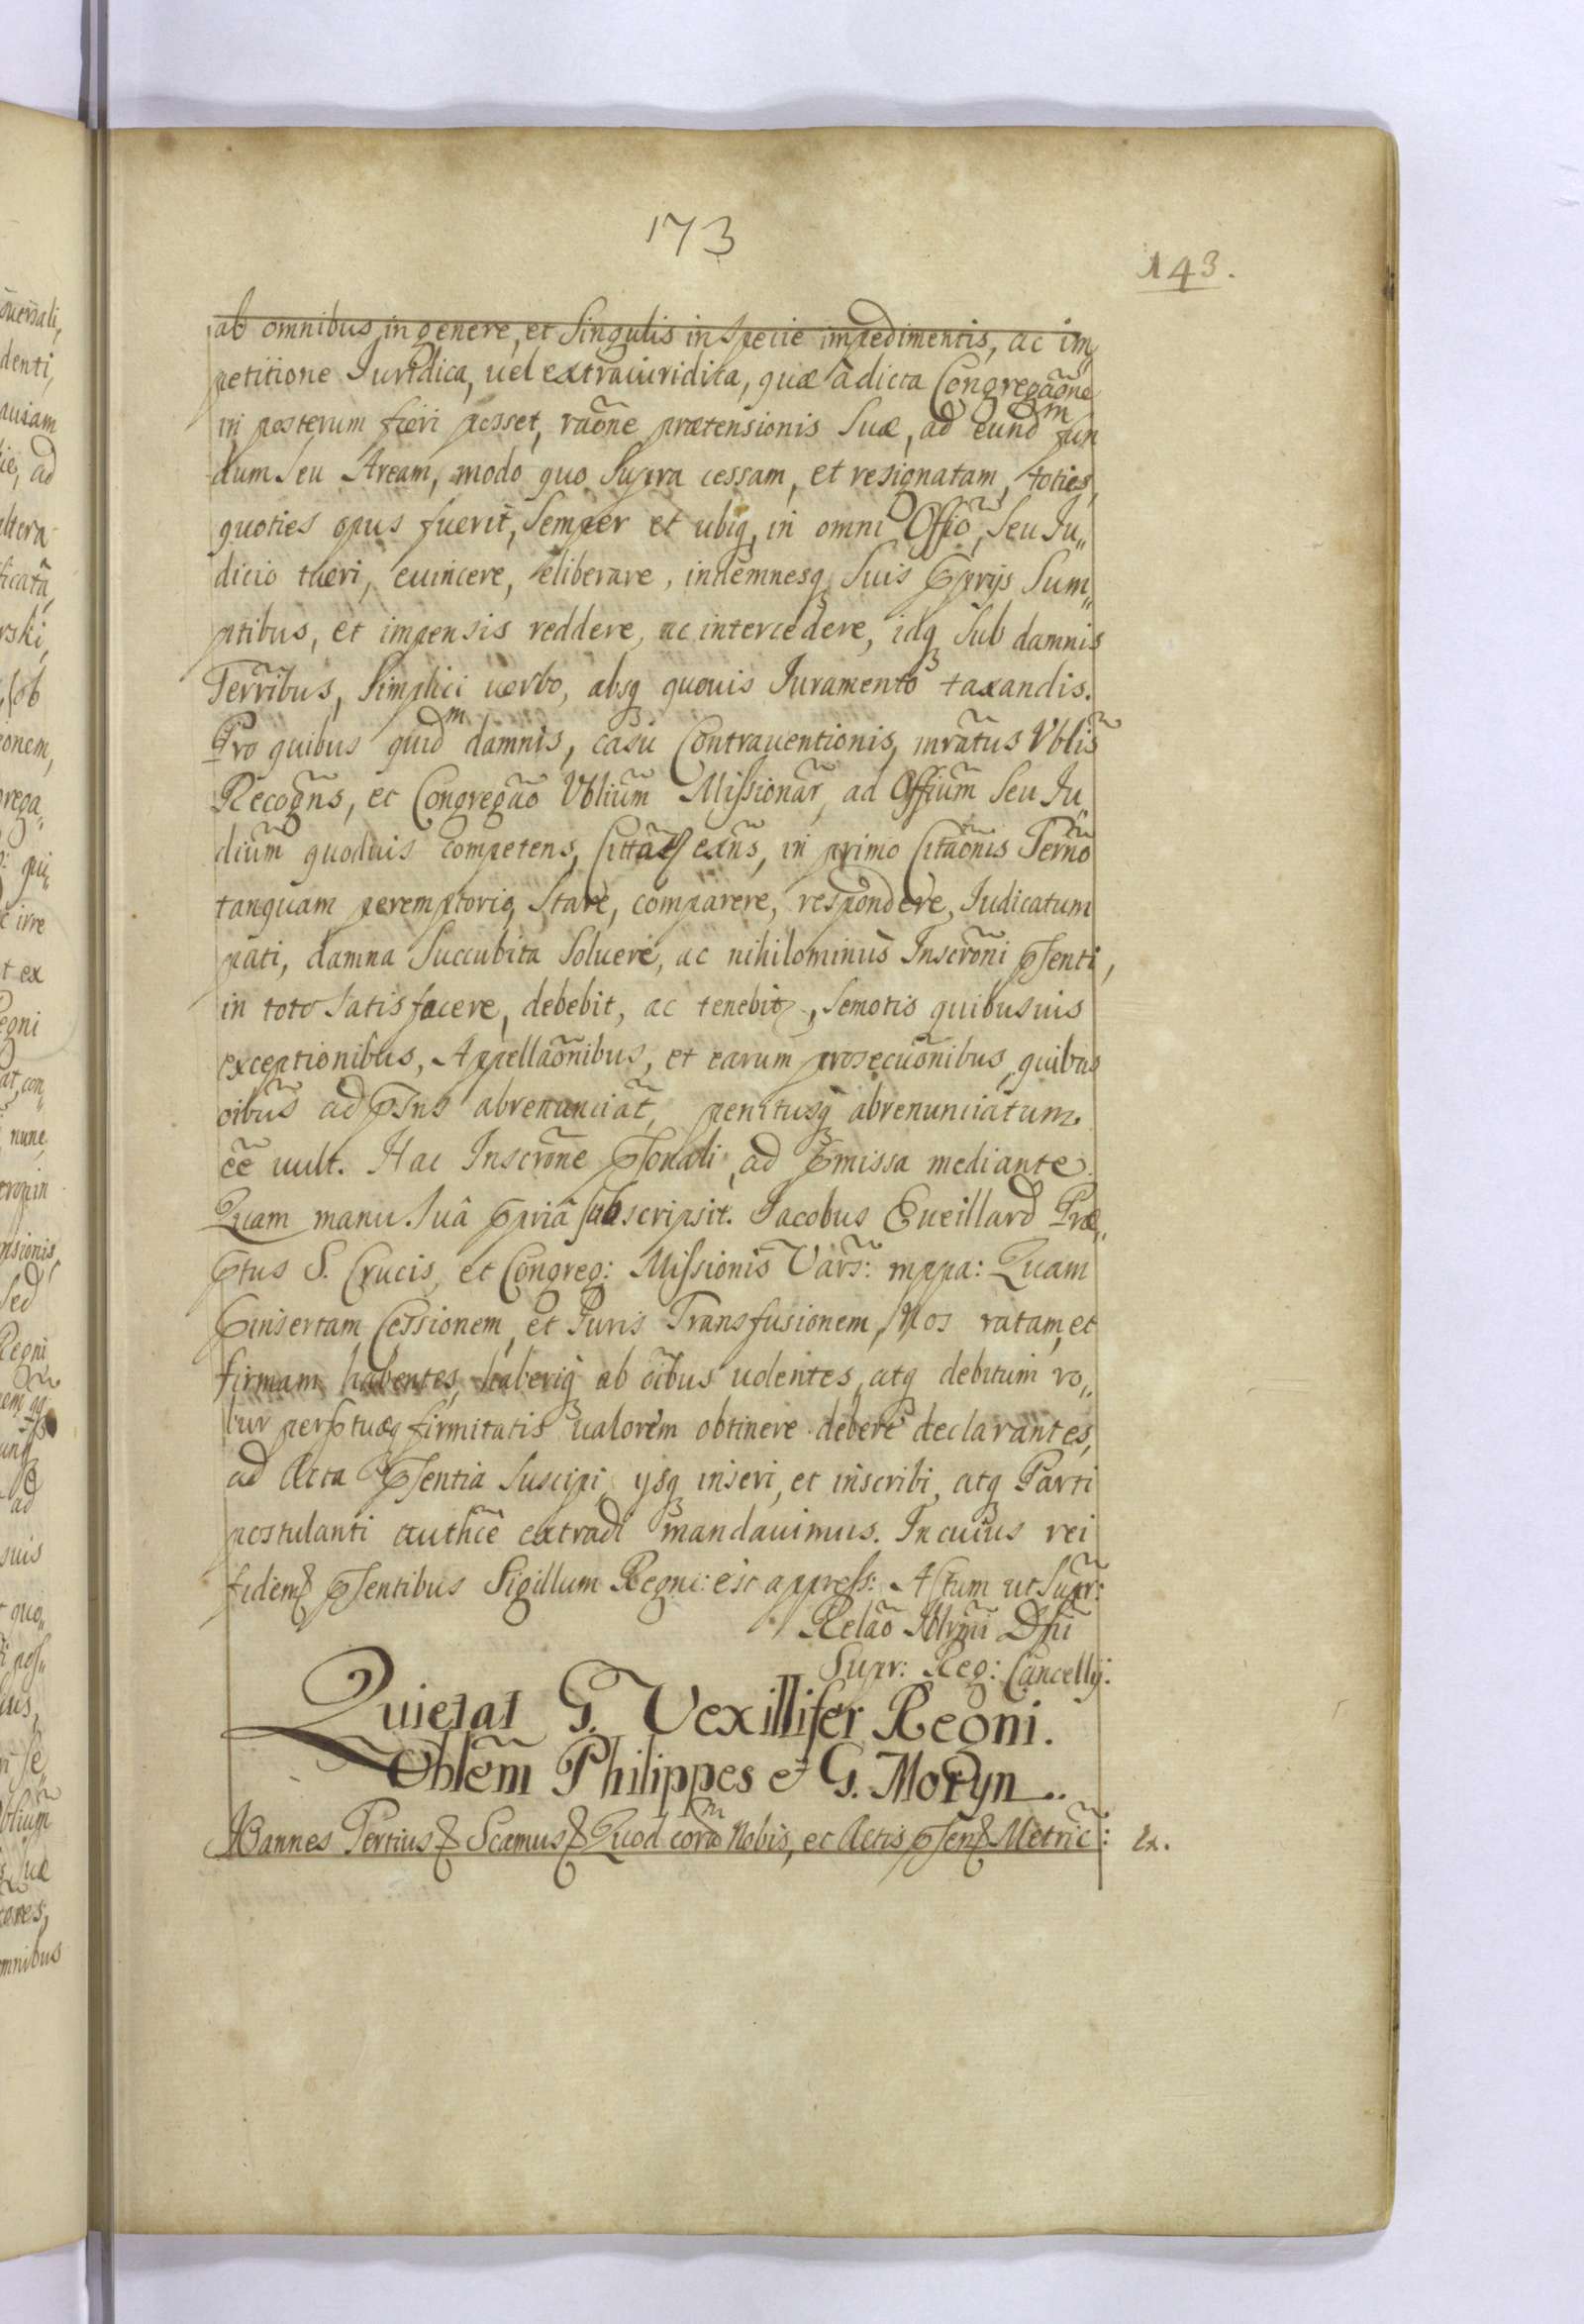 173
143.
ab omnibus, in genere, et Singulis in Specie impedimentis, ac im„
petitione Iuridica, uel extraiuridica, quæ à dicta Congregaõne
in posterum fieri posset, raõne prætensionis Suæ, ad eundᵐ fun
dum Seu Aream, modo quo Supra cessam, et resignatam, toties,
quoties opus fuerit, Semper et ubiq, in omni Offiõ, Seu Iu„
dicio tueri, euincere, eliberare, indemnesq Suis ꝓprijs Sum„
ptibus, et impensis reddere, ac intercedere, idq Sub damnis
Terr̃ibus, Simplici uerbo, absq quouis Iuramento taxandis.
Pro quibus quidᵐ damnis, casu Contrauentionis, inrãtus Vblis̃
Recogñs, et Congregaõ Vbliũm Missionar̃, ad Offiũm Seu Iu„
diũm quoduis competens, Cittãꝭ exñs, in primo Citaõnis Term̃o
tanquam peremptorio, Stare, comparere, respondere, Iudicatum
pati, damna Succubita Soluere, ac nihilominus Inscrõni pñsenti,
in toto Satisfacere, debebit, ac tenebitꝛ, Semotis quibusuis
exceptionibus, Appellaõnibus, et earum prosecuõnibus, quibus
oib̃us ad pñsns abrenunciat̃, penitusq abrenunciatum
eẽ uult. Hac Inscrõne ꝑsonali, ad p̃missa mediante.
Quam manu Suâ ꝓpriâ Subscripsit. Iacobus Eueillard Præ„
ꝓtus S. Crucis, et Congreg: Missionis Vars̃: mppa: Quam
p̃insertam Cessionem, et Iuris Transfusionem, Nos ratam, et
firmam habentes, haberiq ab oĩbus uolentes, atq debitum ro„
bur perp̃tuæq firmitatis ualorem obtinere debere declarantes,
ad Acta p̃sentia Suscipi, ysq inseri, et inscribi, atq Parti
postulanti authcẽ extradi mandauimus. In cuius rei
fidemꝭ p̃sentibus Sigillum Regni: est appress: Actum ut Supr̃:
Relaõ Illr̃mi Dñi
Supr: Reg: Cancellÿ:
Quietat G. Vexillifer Regni.
Noblẽm Philippes et G. Moryn.
Ioannes Tertiusꝭ Scamusꝭ Quod corãᵐ Nobis, et Actis p̃senꝭ Metric̃:
Ex.